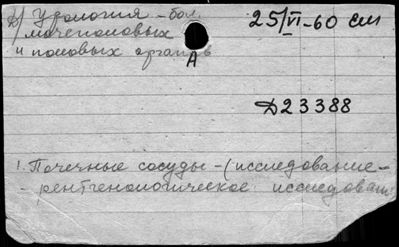 Д) Урология - бол. 25/VI-60 см
мочеполовых
и половых органов
А
Д23388
1. Почечные сосуды - (исследование -
- рентгенологическое исследован